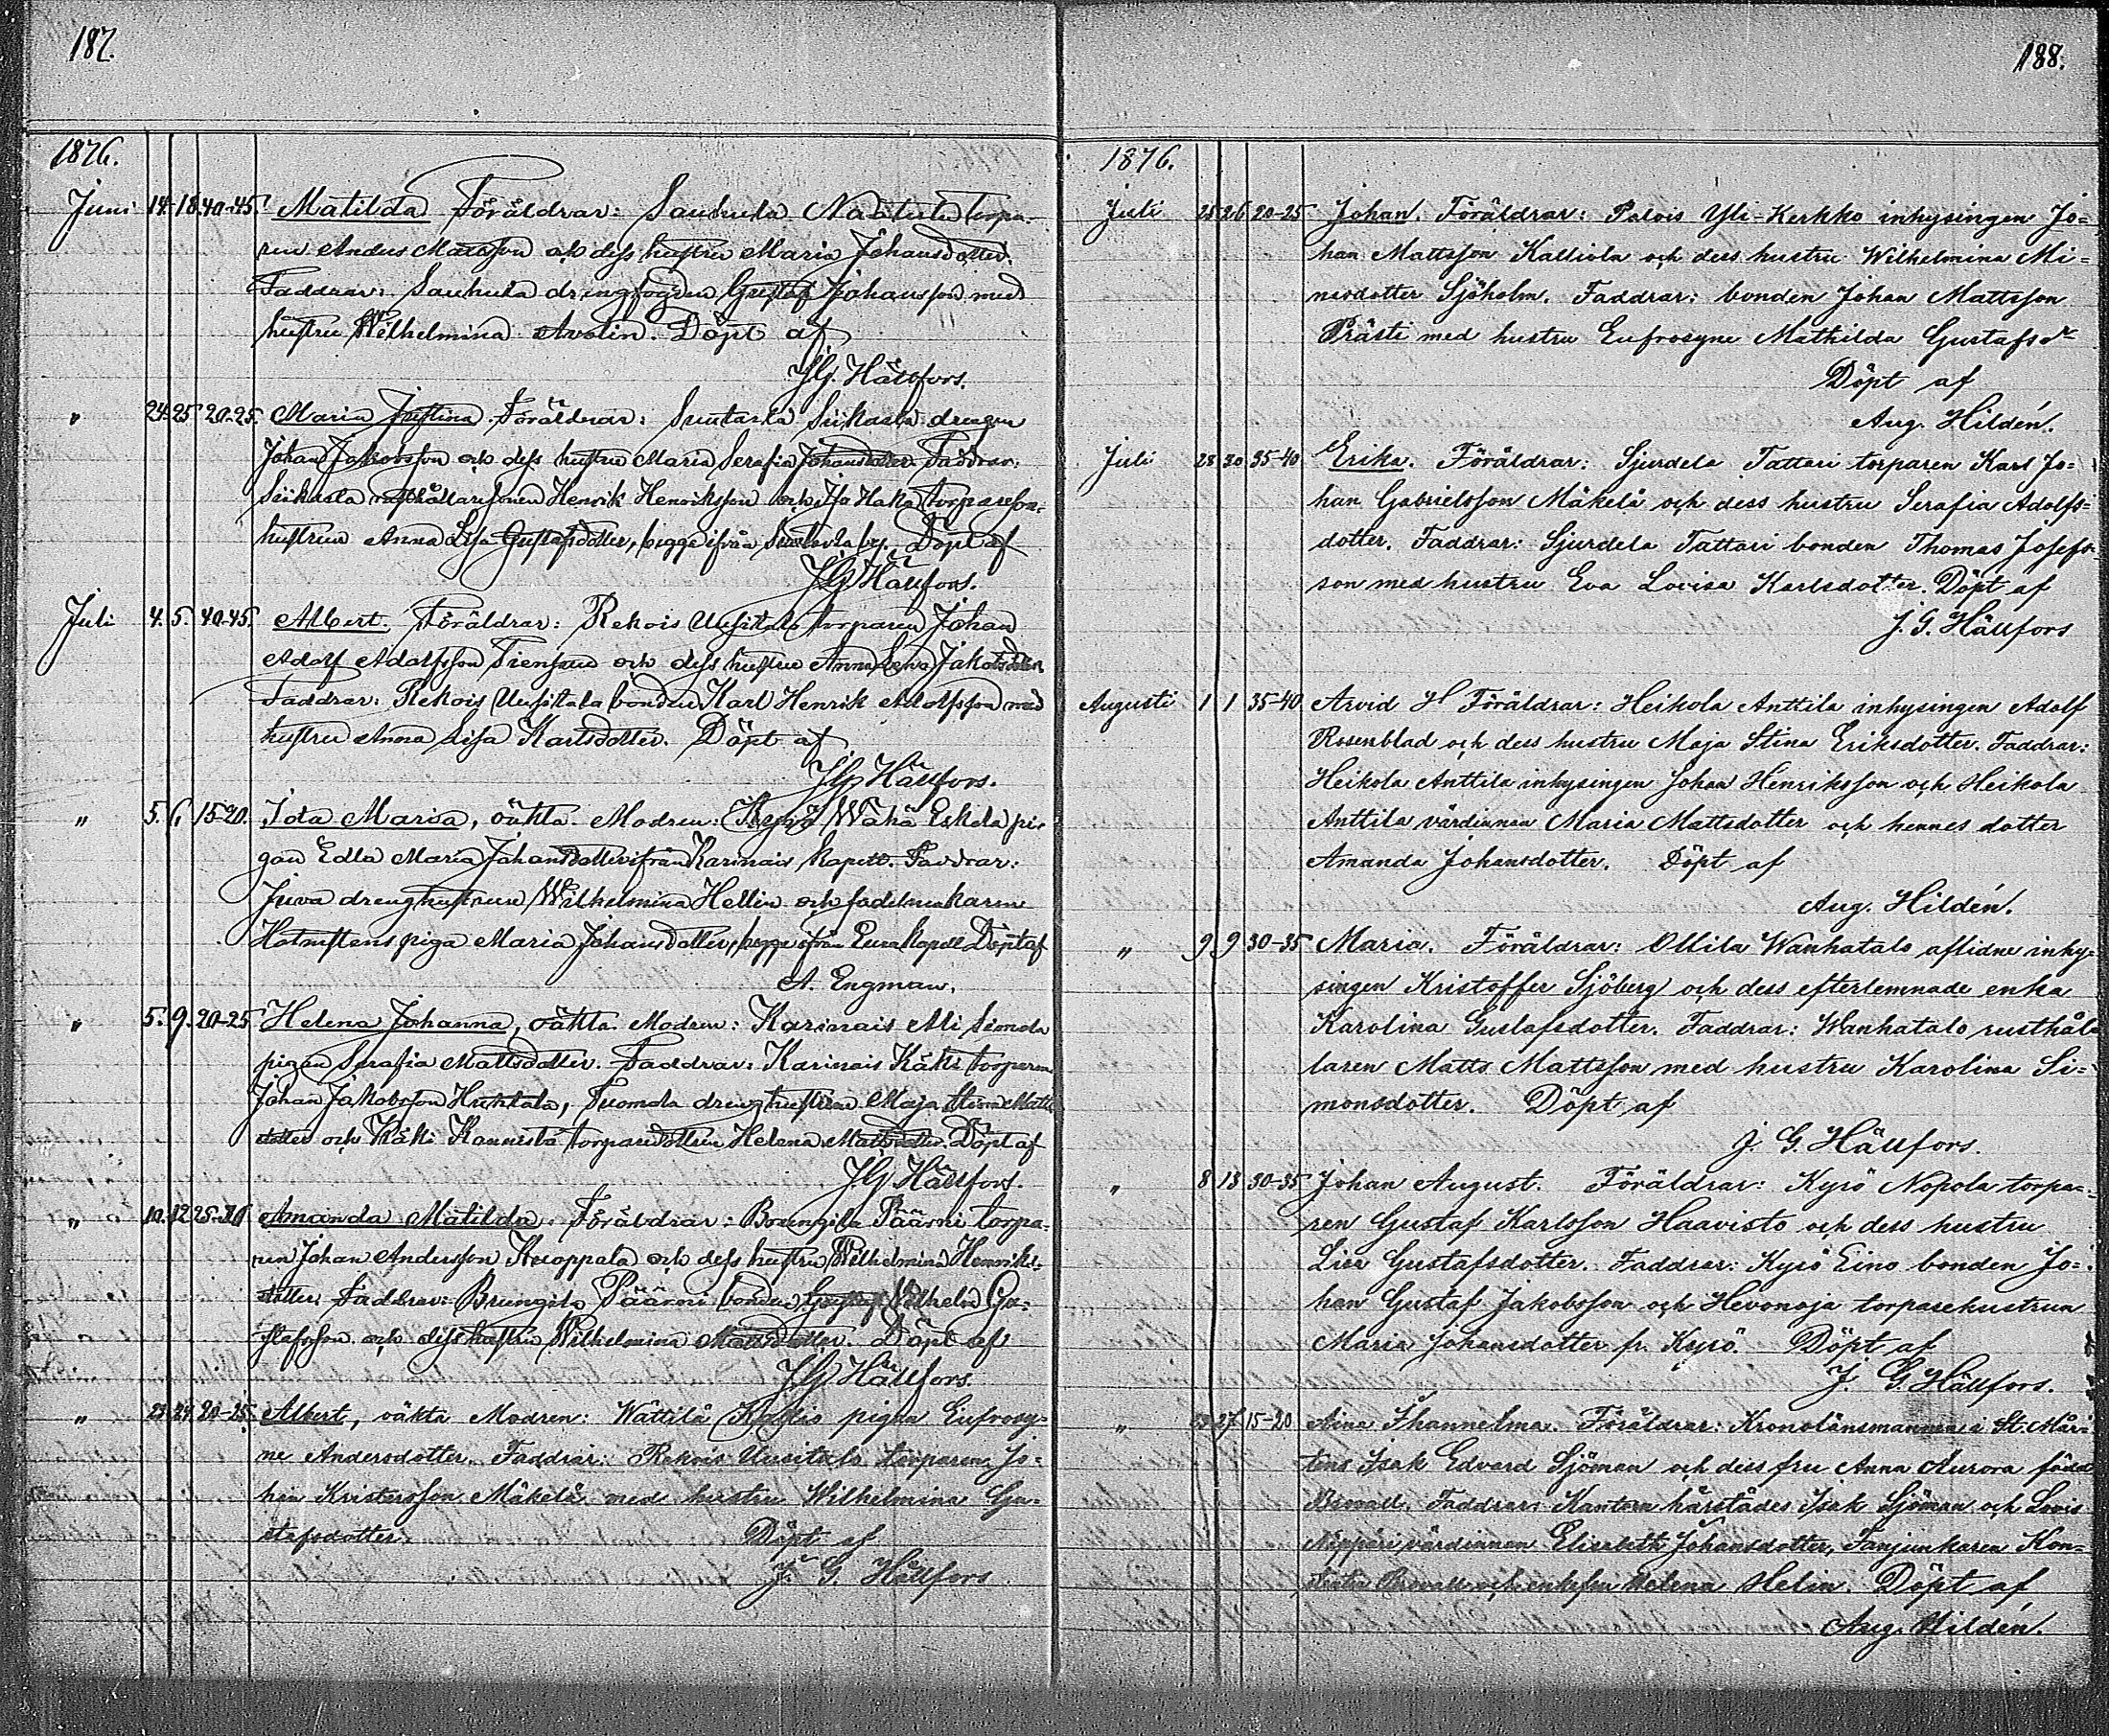 187.
1876.
Juni 14. 18. 40-45. Matilda Föräldrar: Sauhula Näätulu torpa-
ren Anders Mattsson och dess hustru Maria Johansdotter.
Faddrar: Sauhula drengfogden Gustaf Johansson med
hustru Wilhelmina Avolin. Döpt af
J.G. Hällfors.
" 24. 25. 20-25. Maria Justina. Föräldrar: Suutarla Siikaala drengen
Johan Jakobsson och dess hustru Maria Serafia Johansdotter. Faddrar:
Siikaala rusthållaresonen Henrik Henriksson och Isa Haka torpareson-
hustrun Anna Lisa Gustafsdotter, begge ifrån Suutarla by. Döpt af
J.G. Hällfors.
Juli 4. 5. 40-45. Albert. Föräldrar: Rekois Uusitalo torparen Johan
Adolf Adolfsson Friensuu och dess hustru Anna Lena Jakobsdotter.
Faddrar: Rekois Uusitalo bonden Karl Henrik Adolfsson med
hustru Anna Lisa Karlsdotter. Döpt af
J.G. Hällfors.
" 5. 6. 15-20. Ida Maria, oäkta. Modren: Wähä Eskela pi-
gan Edla Maria Johansdotter ifrån Karinais kapell. Faddrar:
Juva drenghustrun Wilhelmina Hellin och
piga Maria Johansdotter, begge ifrån Eura kapell. Döpt af
A. Engman.
" 5. 9. 20-25 Helena Johanna, oäkta. Modren: Karinais Ali Simola
pigan Serafia Mattsdotter. Faddrar: Karinais Käki torparen
Johan Jakobsson Huhtala, Tuomola drenghustrun Maja Stina Matts-
dotter och Käki Kannisto torparedottren Helena Mattsdotter. Döpt af
J.G. Hällfors.
" 10. 12. 25-30 Amanda Matilda. Föräldrar: Brungila Päärni torpa-
ren Johan Andersson Knoppala och dess hustru Wilhelmina Henriks-
dotter. Faddrar: Brungila Päärni bonden Gustaf Vilhelm Gu-
stafsson och dess hustru Wilhelmina Mattsdotter. Döpt af
J.G. Hällfors.
" 23. 24. 20-25. Albert, oäkta Modren: Wättilä Kallio pigan Eufrosy-
ne Andersdotter. Faddrar: Rekois Uusitalo torparen Jo-
han Kristersson Mäkelä med hustru Wilhelmina Gu-
stafsdotter. Döpt af
J. G. Hällfors
188.
1876.
Juli 25 26 20-25 Johan. Föräldrar: Palois Yli-Kerkko inhysingen Jo=
han Mattsson Kalliola och dess hustru Wilhelmina Mi=
nasdotter Sjöholm. Faddrar: bonden Johan Mattsson
Prästi med hustru Eufrosyne Mathilda Gustafsdr
Döpt af
Aug. Hildén.
Juli 28 30 35-40 Erika. Föräldrar: Sjurdela Tattari torparen Karl Jo=
han Gabrielsson Mäkelä och dess hustru Serafia Adolfs=
dotter. Faddrar: Sjurdela Tattari bonden Thomas Josefs-
son med hustru Eva Lovisa Karlsdotter. Döpt af
J. G. Hällfors
Augusti 1 1 35-40 Arvid Föräldrar: Heikola Anttila inhysingen Adolf
Rosenblad och dess hustru Maja Stina Eriksdotter. Faddrar:
Heikola Anttila inhysingen Johan Henriksson och Heikola
Anttila värdinnan Maria Mattsdotter och hennes dotter
Amanda Johansdotter. Döpt af
Aug. Hildén.
" 9 9 30-35 Maria. Föräldrar: Ollila Wanhatalo aflidne inhy=
singen Kristoffer Sjöberg och dess efterlemnade enka
Karolina Gustafsdotter. Faddrar: Wanhatalo rusthål-
laren Matts Mattsson med hustru Karolina Si=
monsdotter. Döpt af
J. G. Hällfors.
" 8 13 30-35 Johan August. Föräldrar: Kyrö Nopola torpa=
ren Gustaf Karlsson Haavisto och dess hustru
Lisa Gustafsdotter. Faddrar: Kyrö Eino bonden Jo=
han Gustaf Jakobsson och Hevonoja torparehustrun
Maria Johansdotter fr. Kyrö. Döpt af
J. G. Hällfors.
" 27 15-20 Aina Föräldrar: Kronolänsmannen i St. Mår-
tens Isak Edvard Sjöman och dess fru Anna Aurora född
Faddrar: Kantorn härstädes Isak Sjöman och
Nippari värdinnan Elisabeth Johansdotter, Fanjunkaren Kon=
och enkefru Helena Helin. Döpt af
Aug. Hildén.